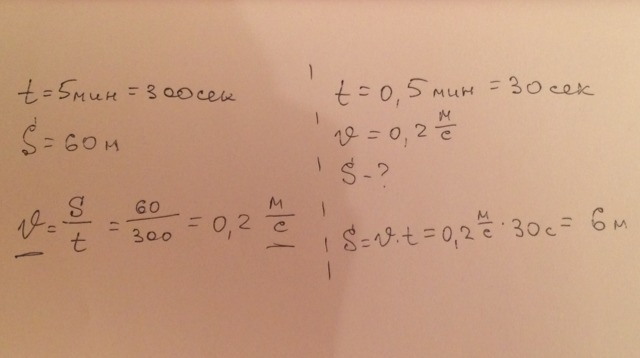 t=5мин=300сек
S=60м
v=S/t=60/300=0,2 м/с
t=0,5мин=30сек
v=0,2 м/с
S-?
S=v·t=0,2 м/с·30с=6м